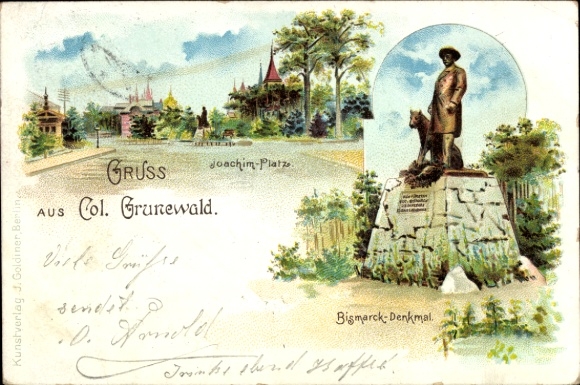 Joachim-Platz.
GRUSS
AUS Col. Grunewald.
Bismarck-Denkmal.
Viele Grüsse
sendet
O. Arnold
Trinke eben Kaffee.
Kunstverlag J. Goldiner, Berlin.